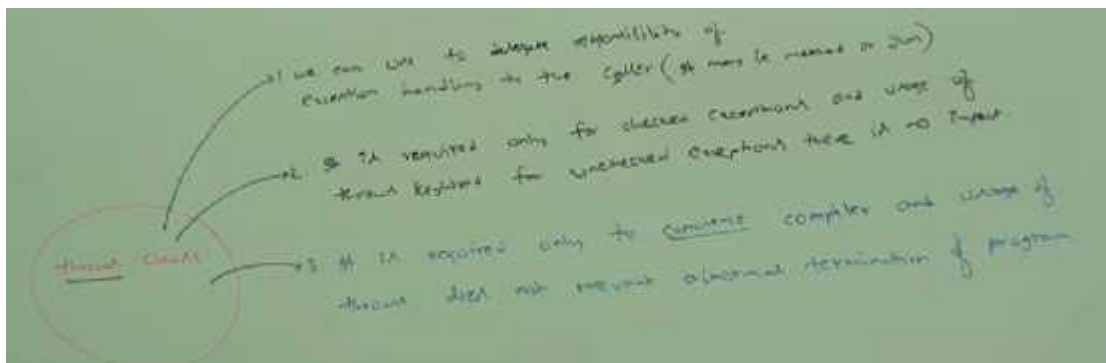 1 we can use to delegate responsibility of
exception handling to the caller (it may be method or Jvm)
2. It is required only for checked exceptions and usage of
throws keyword for unchecked exceptions there is no impact
throws clause
3 It is required only to convince compiler and usage of
throws does not prevent abnormal termination of program